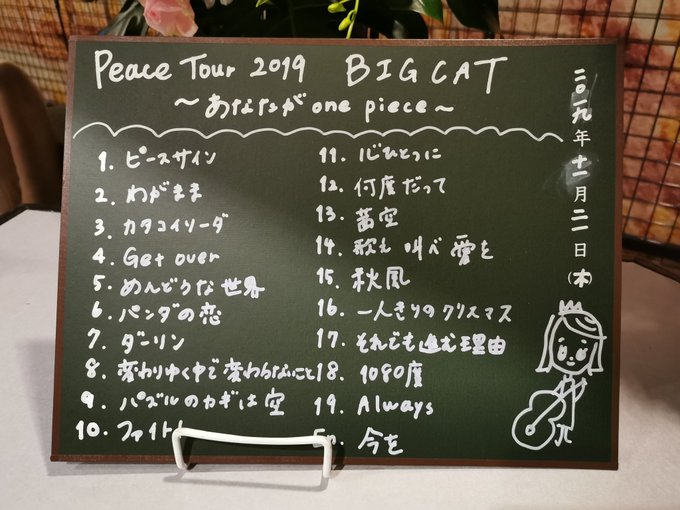 Peace Tour 2019 BIG CAT
～あなたが one piece～
二〇一九年十一月二一日(木)
1. ピースサイン
2. わがまま
3. カタコイソーダ
4. Get over
5. めんどうな世界
6. パンダの恋
7. ダーリン
8. 変わりゆく中で変わらないこと
9. パズルのカギは空
10. ファイト
11. 心ひとつに
12. 何度だって
13. 茜空
14. 歌え 叫べ 愛を
15. 秋風
16. 一人きりのクリスマス
17. それでも進む理由
18. 1080度
19. Always
20. 今を